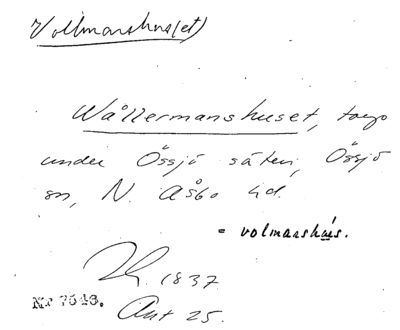 Vollmanshus(et)
Wållermanshuset, torp
under Össjö säteri, Össjö
sn, N. Åsbo hd.
= volmanshus.
1837
No 7548.
Akt 25.